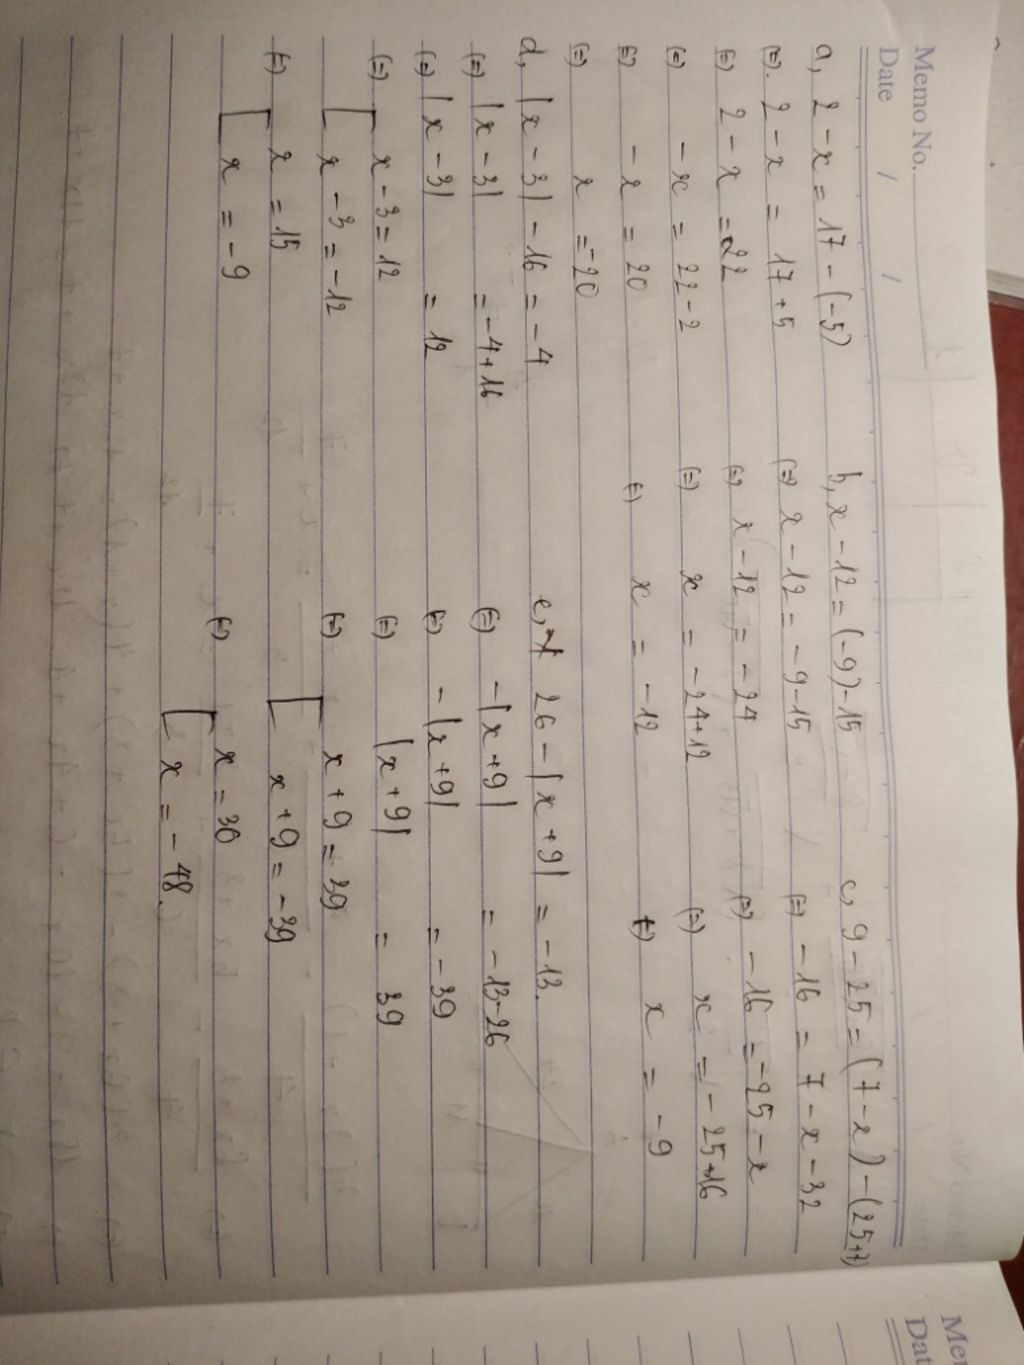 Memo No.
Date / /
a, 2 - x = 17 - (-5)
(=). 2 - x = 17 + 5
(=) 2 - x = 22
(=) - x = 22 - 2
(=) - x = 20
(=) x = -20
b, x - 12 = (-9) - 15
(=) x - 12 = - 9 - 15
(=) x - 12 = - 24
(=) x = - 24 + 12
(=) x = - 12
c, 9 - 25 = (7 - x) - (25+7)
(=) - 16 = 7 - x - 32
(=) - 16 = - 25 - x
(=) x = - 25 + 16
(=) x = - 9
d, |x - 3| - 16 = - 4
(=) |x - 3| = - 4 + 16
(=) |x - 3| = 12
(=) x - 3 = 12
x - 3 = - 12
(=) x = 15
x = - 9
e, 26 - |x + 9| = - 13.
(=) - |x + 9| = - 13 - 26
(=) - |x + 9| = - 39
(=) |x + 9| = 39
(=) x + 9 = 39
x + 9 = - 39
(=) x = 30
x = - 48.
Me
Dat